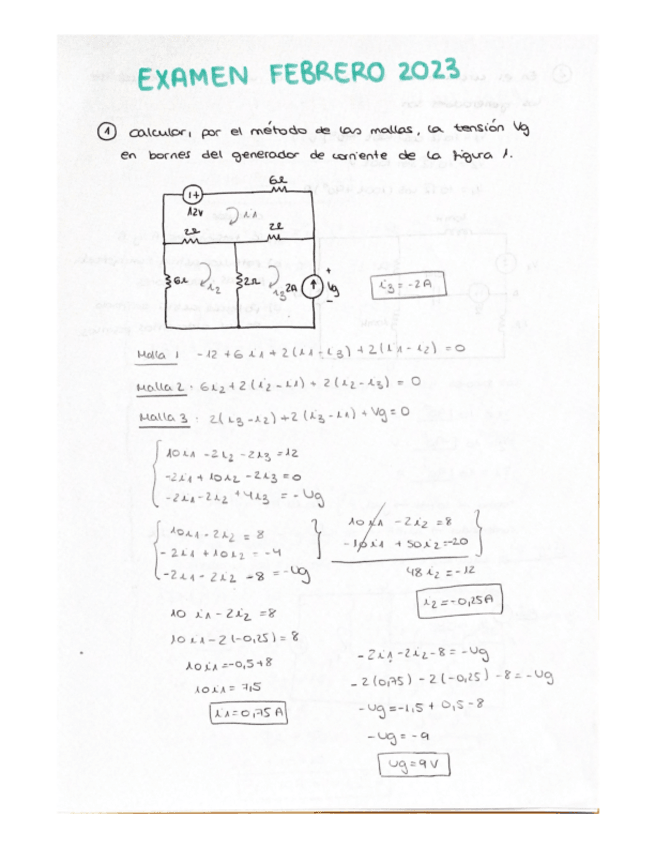 EXAMEN FEBRERO 2023
① calcular, por el método de las mallas, la tensión Vg
en bornes del generador de corriente de la figura 1.
6Ω
12V
i1
2Ω
2Ω
6Ω
i2
2Ω
i3
2A
+
Vg
-
i3 = -2A
Malla 1 -12 + 6i1 + 2(i1 - i3) + 2(i1 - i2) = 0
Malla 2: 6i2 + 2(i2 - i1) + 2(i2 - i3) = 0
Malla 3: 2(i3 - i2) + 2(i3 - i1) + Vg = 0
10i1 - 2i2 - 2i3 = 12
-2i1 + 10i2 - 2i3 = 0
-2i1 - 2i2 + 4i3 = -Vg
10i1 - 2i2 = 8
-2i1 + 10i2 = -4
-2i1 - 2i2 - 8 = -Vg
10i1 - 2i2 = 8
-10i1 + 50i2 = -20
48i2 = -12
i2 = -0,25A
10 i1 - 2i2 = 8
10i1 - 2(-0,25) = 8
10i1 = -0,5 + 8
10i1 = 7,5
i1 = 0,75A
-2i1 - 2i2 - 8 = -Vg
-2(0,75) - 2(-0,25) - 8 = -Vg
-Vg = -1,5 + 0,5 - 8
-Vg = -9
Vg = 9V